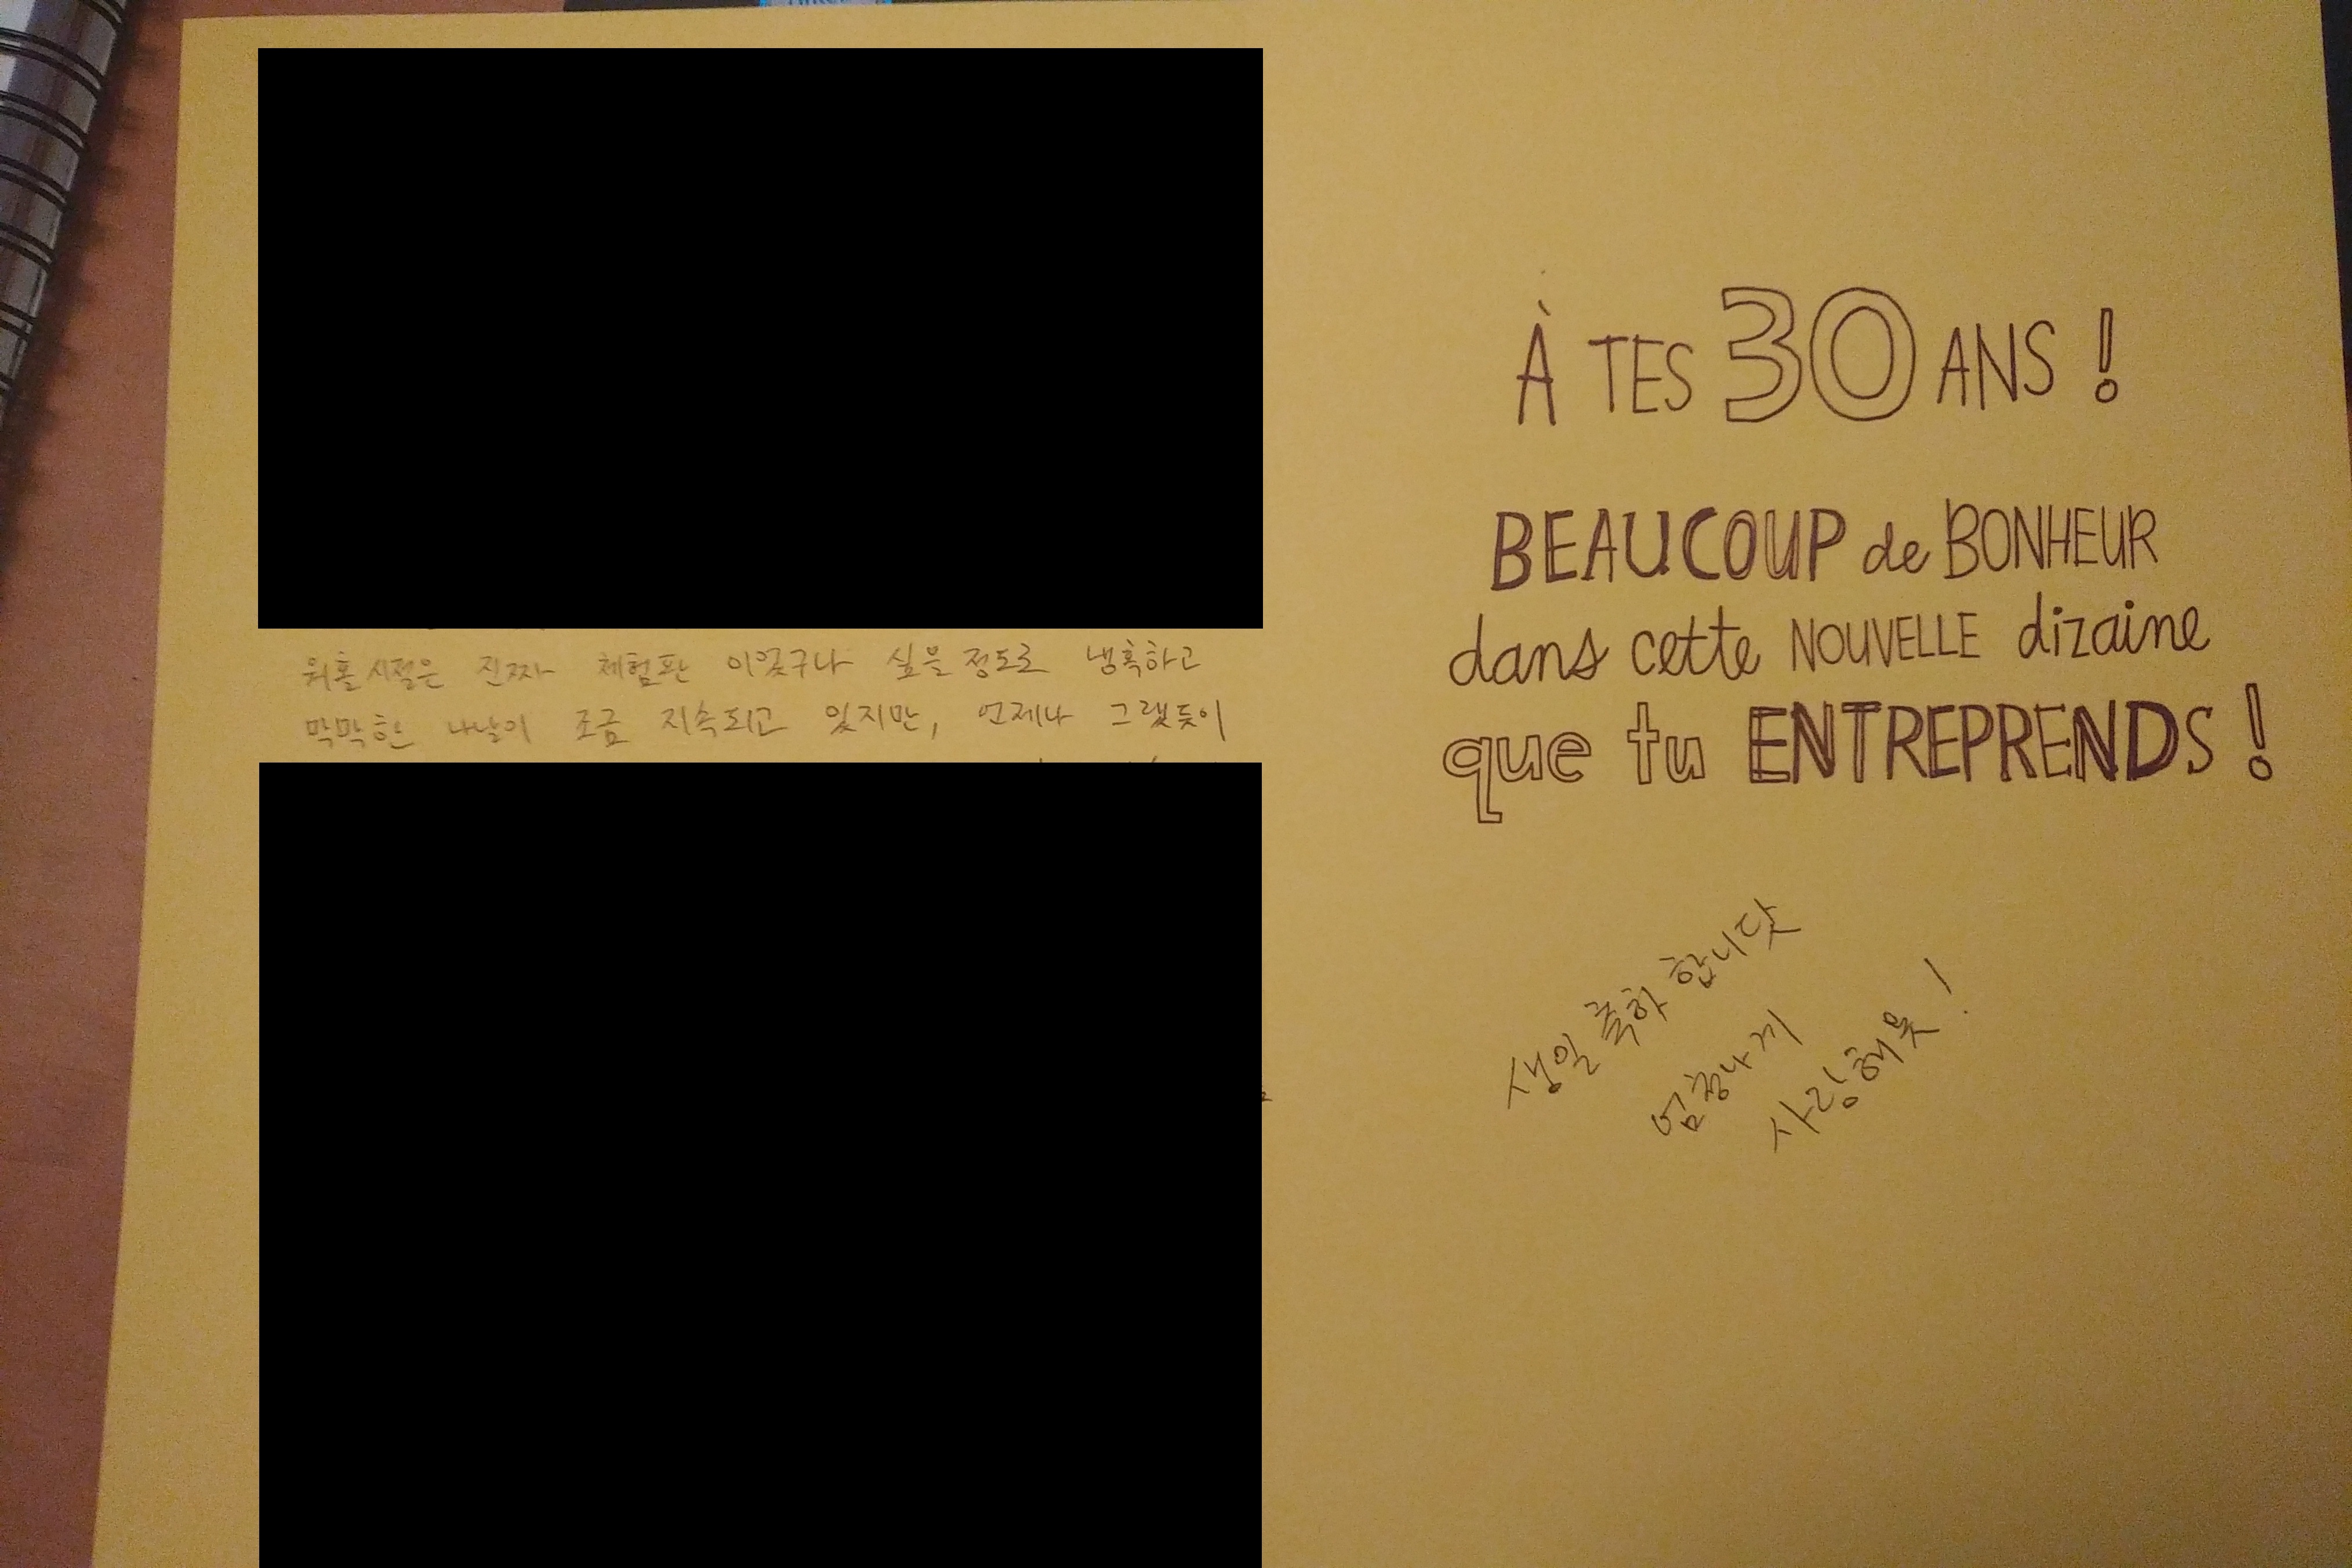 워홀시절은 진짜 체험판 이었구나 싶을정도로 냉혹하고
막막한 나날이 조금 지속되고 있지만, 언제나 그랬듯이
À TES 30 ANS !
BEAUCOUP de BONHEUR
dans cette NOUVELLE dizaine
que tu ENTREPRENDS !
생일 축하 합니닷
엄청나게
사랑해욧!